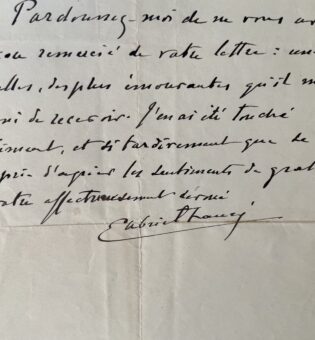 Pardonnez-moi de ne vous av
remercié de votre lettre : une
elles, des plus émouvantes qu'il m
de recevoir. J'en ai été touché
iment, et si tardivement que ce
prie d'agréer les sentiments de grat
votre affectueusement dévoué
Gabriel Fauré